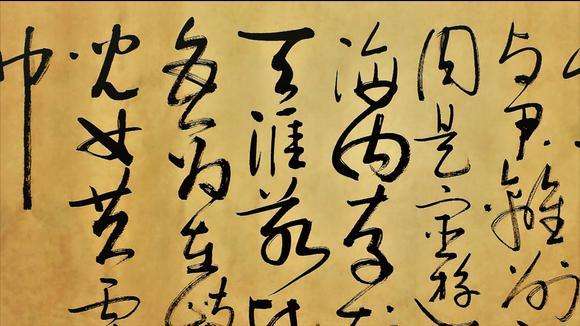 与君離別
同是宦遊
海内存知
天涯若比
無為在歧
兒女共霑
巾